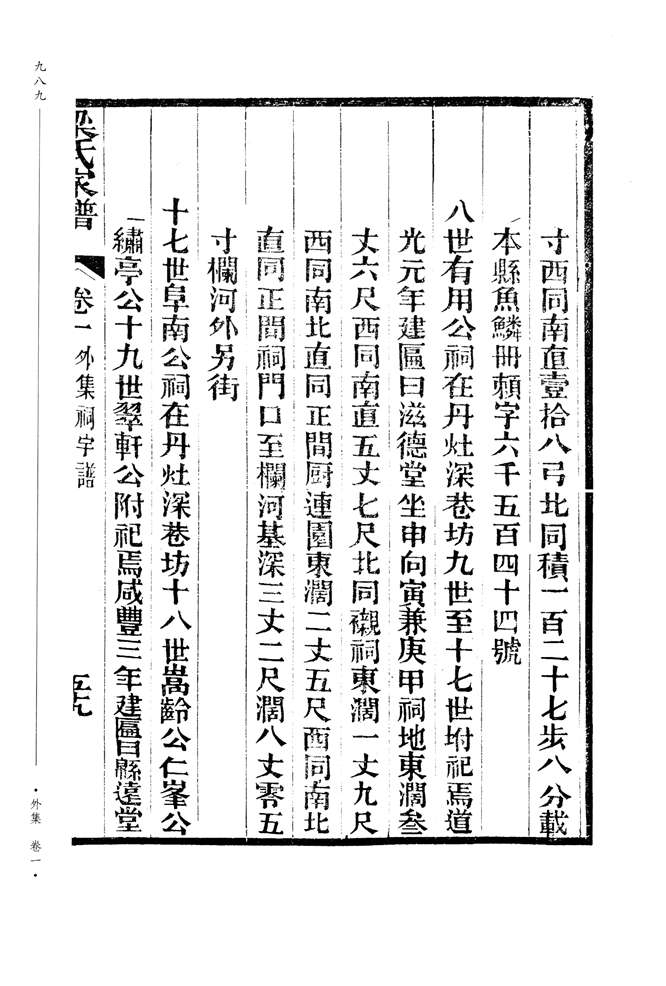 寸西同南直壹拾八弓北同積一百二十七步八分載
本縣魚鱗冊頼字六千五百四十四號
八世有用公祠在丹灶深巷坊九世至十七世坿祀焉道
光元年建匾曰滋德堂坐申向寅兼庚甲祠地東濶叁
丈六尺西同南直五丈七尺北同襯祠東濶一丈九尺
西同南北直同正間厨連園東濶二丈五尺西同南北
直同正間祠門口至欄河基深三丈二尺濶八丈零五
寸欄河外另街
十七世阜南公祠在丹灶深巷坊十八世嵩齡公仁峯公
繡亭公十九世翠軒公附祀焉咸豐三年建匾曰緜遠堂
梁氏家譜
卷一外集祠宇譜
五九
九八九
·外集 卷一·